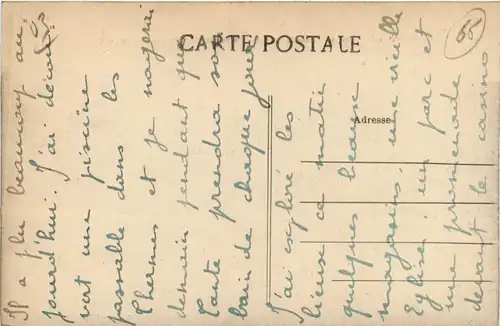 CARTE POSTALE
Adresse
Il a plu beaucoup au-
jourd'hui. J'ai décou-
vert une piscine
passable dans les
Thermes et je nagerai
demain pendant que
Tante prendra son
bain de chaque jour
J'ai exploré les
lieux ce matin
quelques beaux
magasins, une vieille
Eglise, un parc et
une promenade
devant le casino